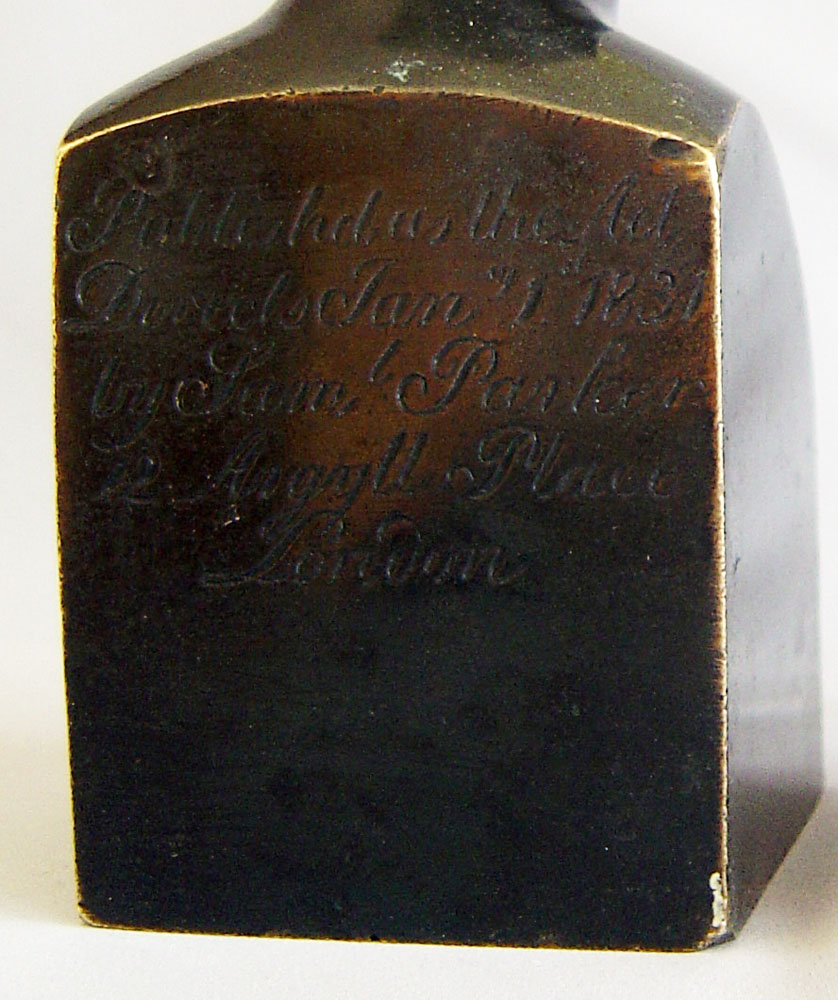 Publish'd as the Act
Directs Jan.y 1st 1831
by Sam.l Parker
12 Argyll Place
London